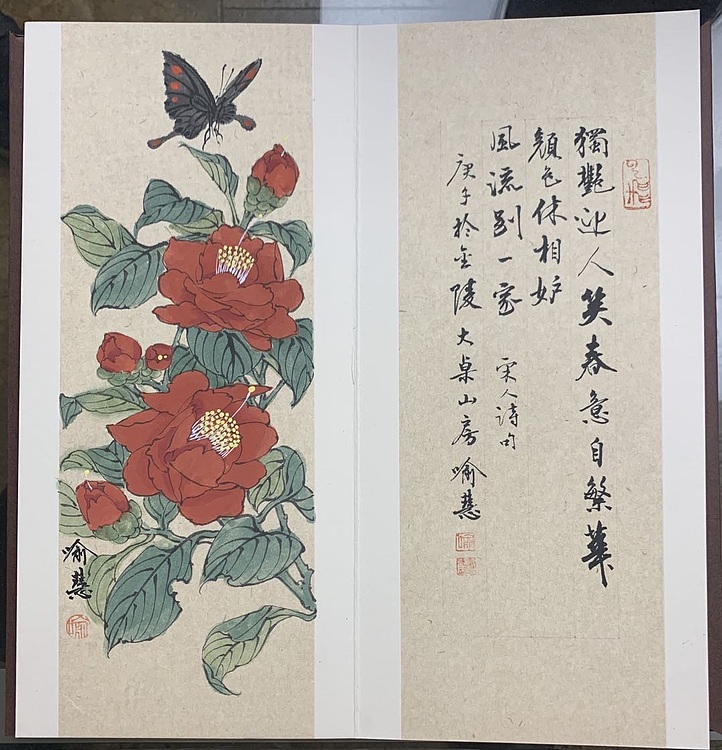 獨艷迎人笑春意自繁華
顏色休相妒
風流别一家 宋人詩句
庚子於金陵大桌山房喻慧
喻慧